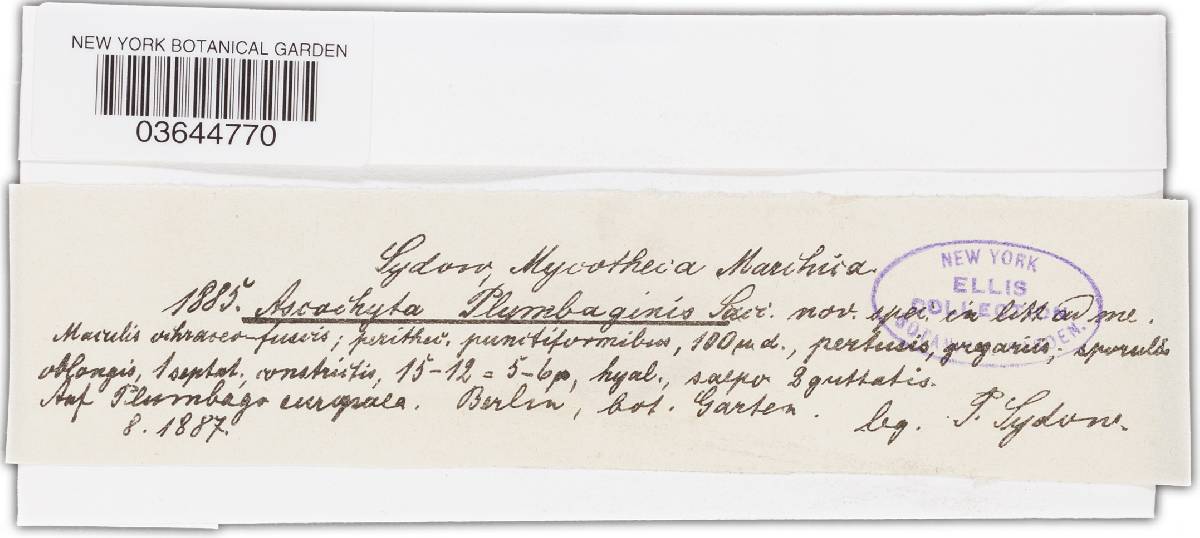 NEW YORK BOTANICAL GARDEN
03644770
Sydow, Mycotheca Marchica.
NEW YORK
ELLIS
COLLECTION
BOTANICAL GARDEN.
1885. Ascochyta Plumbaginis Sacc. nov. spec. in litt. ad me.
Maculis ochraceo-fuscis; perithec. punctiformibus, 100 µ d., pertusis, gregariis; sporulis
oblongis, 1 septat., constrictis, 15-12 = 5-6 µ, hyal., saepe 2 guttatis.
Auf Plumbago europaea. Berlin, bot. Garten.
8. 1887.
leg. P. Sydow.